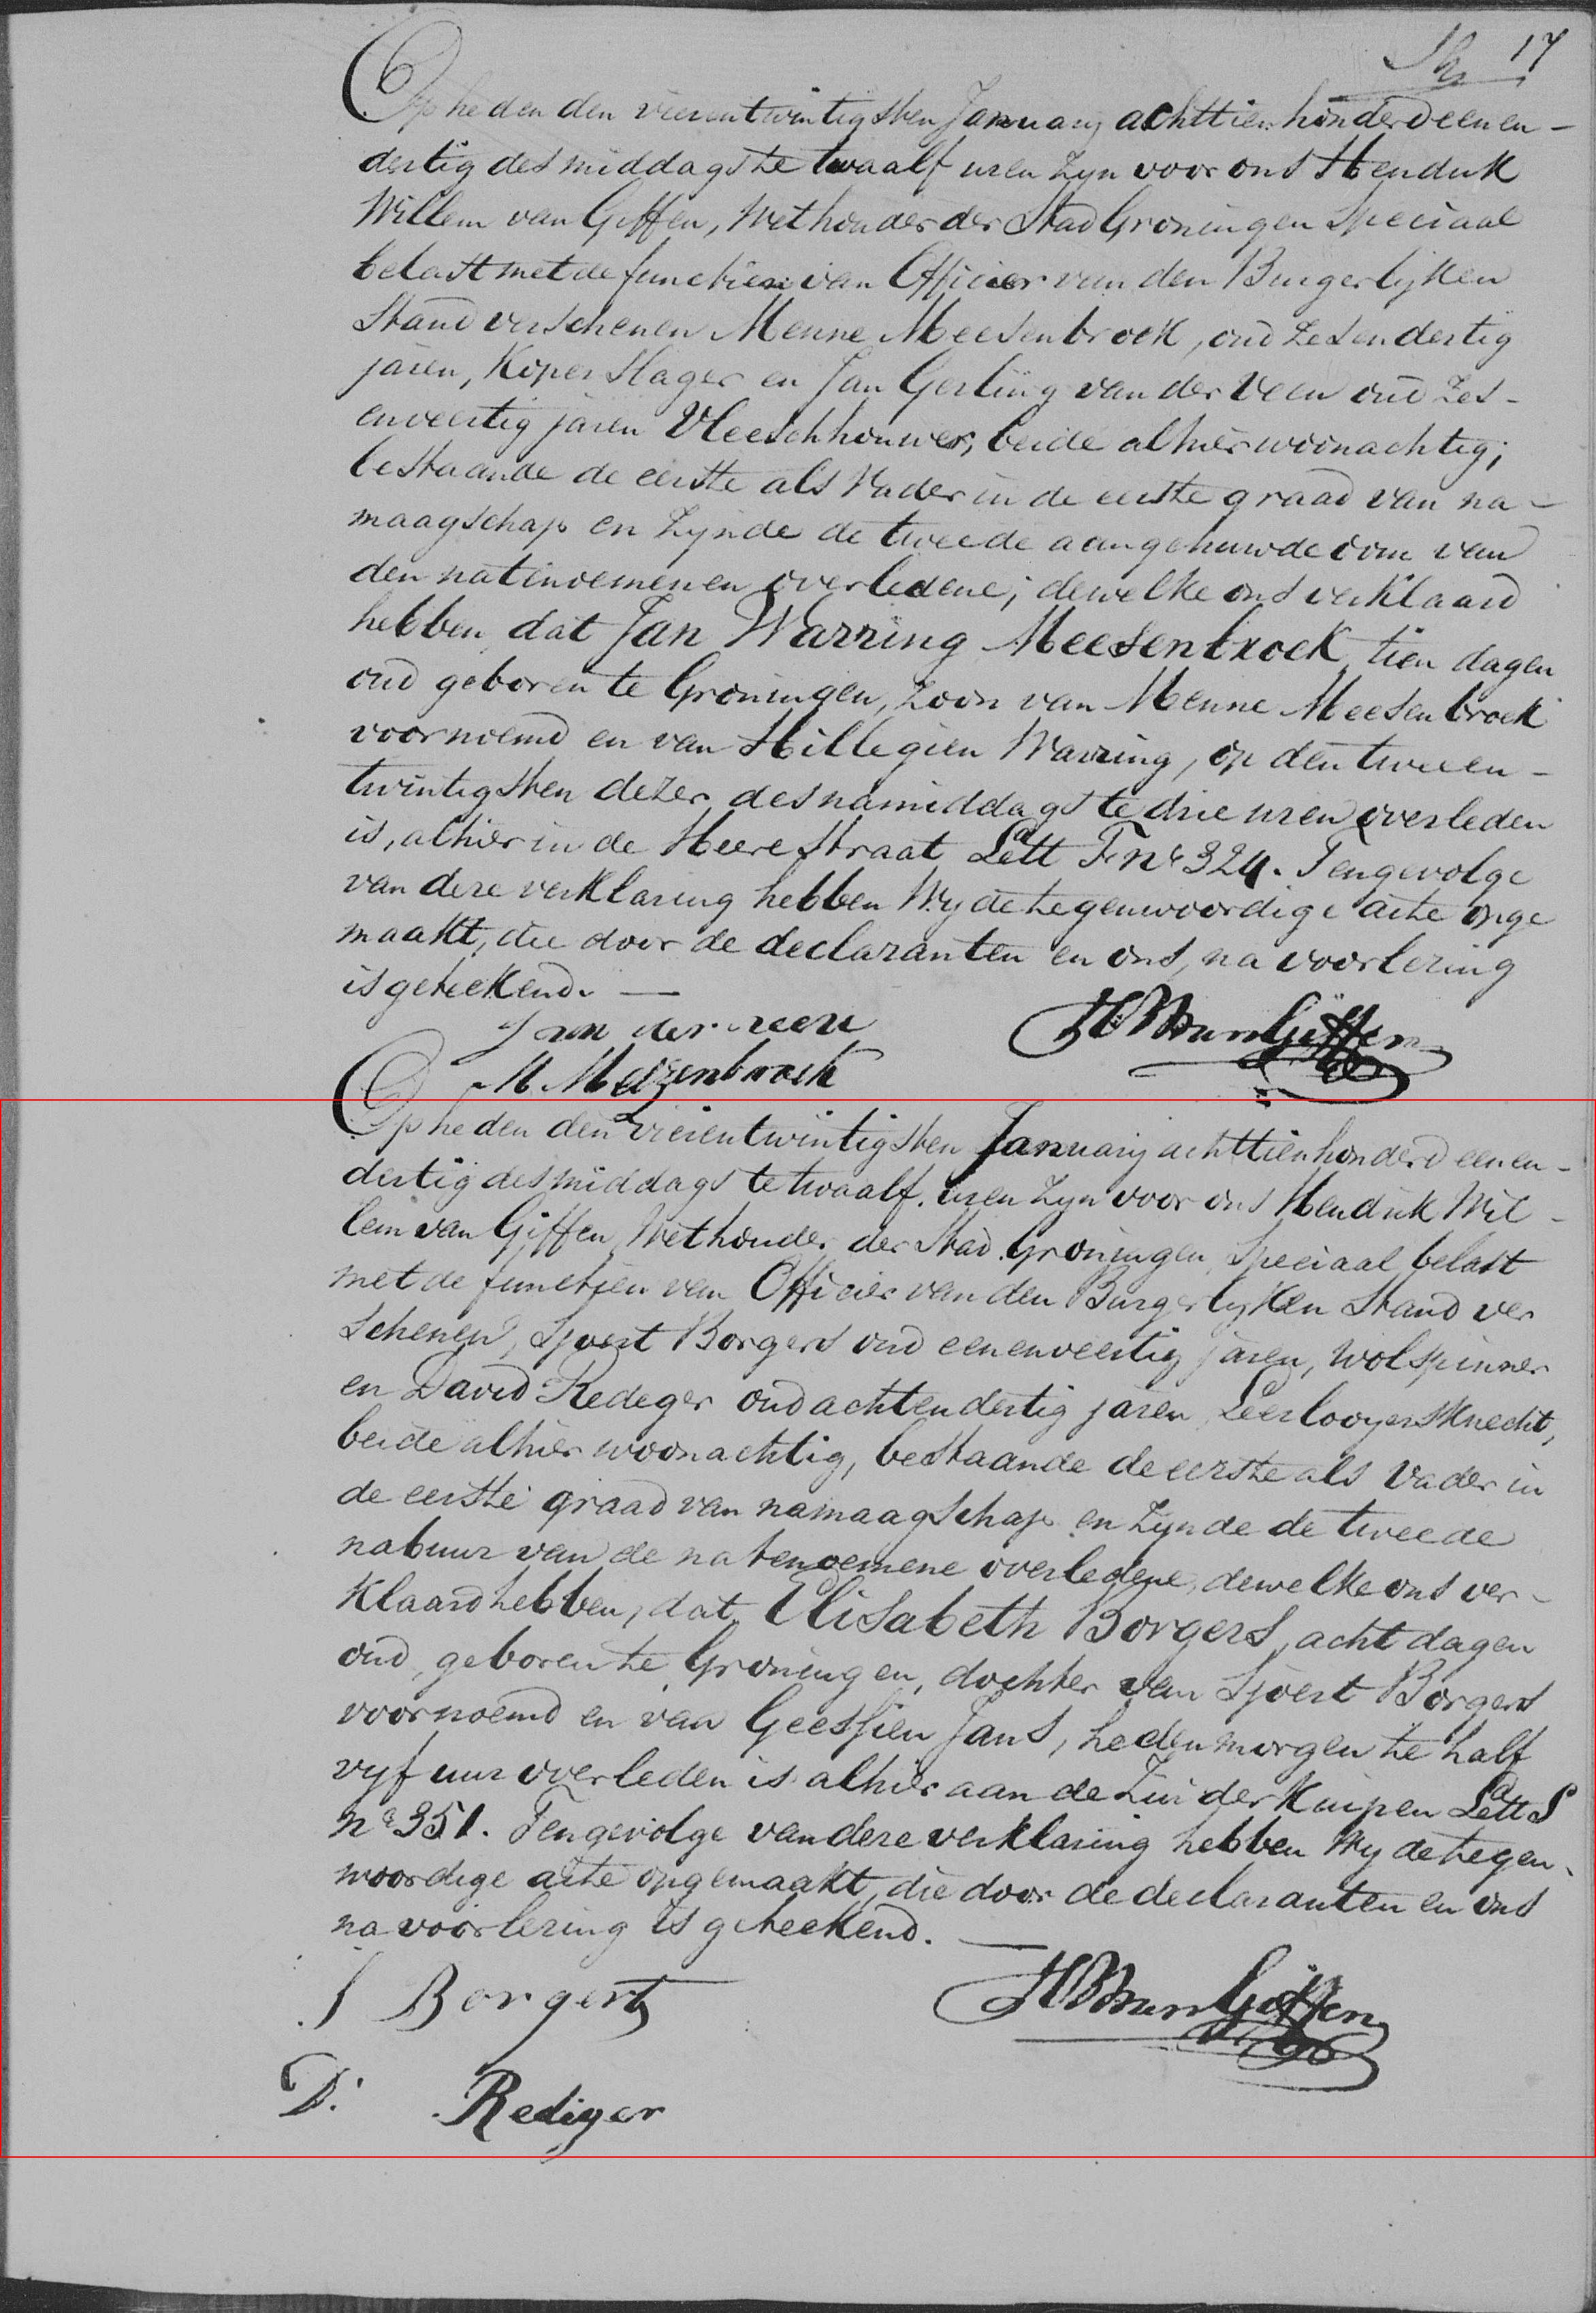 17
Op heden den vierentwintigsten January achttienhonderd eenen-
dertig des middags te twaalf uren zyn voor ons Hendrik
Willem van Giffen, Wethouder der Stad Groningen speciaal
belast met de functien van Officier van den Burgerlyken
Stand verschenen Menne Meesenbroek, oud zesendertig
jaren, Koperslager en Jan Gerling van der Veen oud zes-
enveertig jaren Vleeschhouwer, beide alhier woonachtig;
bestaande de eerste als Vader in de eerste graad van na-
maagschap en zynde de tweede aangehuwde oom van
den natenoemenen overledene; dewelke ons verklaard
hebben, dat Jan Warring Meesenbroek, tien dagen
oud geboren te Groningen, zoon van Menne Meesenbroek
voornoemd en van Hillegien Warring, op den tweeen-
twintigsten dezer des namiddags te drie uren overleden
is, alhier in de Heerestraat Lett F No 324. Tengevolge
van deze verklaring hebben Wy de tegenwoordige acte opge
maakt, die door de declaranten en ons, na voorlezing
is geteekend. —
J van der veen
HWvanGiffen
M Mezenbroek
Op heden den vierentwintigsten January achttienhonderd eenen-
dertig des middags te twaalf uren zyn voor ons Hendrik Wil-
lem van Giffen Wethouder der Stad Groningen, speciaal belast
met de functien van Officier van den Burgerlyken Stand ver
schenen, Sjoert Borgers oud eenenveertig jaren, wolspinner
en David Redeger oud achtendertig jaren Leerlooyersknecht,
beide alhier woonachtig, bestaande de eerste als Vader in
de eerste graad van namaagschap en zynde de tweede
nabuur van de natenoemene overledene, dewelke ons ver-
klaard hebben, dat Elisabeth Borgers, acht dagen
oud, geboren te Groningen, dochter van Sjoert Borgers
voornoemd en van Geessien Jans, heden morgen te half
vyf uur overleden is alhier aan de Zuiderkuipen Lett S
no 351. Tengevolge van deze verklaring hebben Wy de tegen-
woordige acte opgemaakt, die door de declaranten en ons
na voorlezing is geteekend. —
S Borgerts
HWvanGiffen
D. Rediger